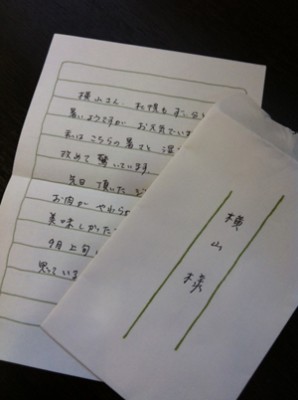 横山さん、札幌もずい分
暑いようですが お元気でい
私は こちらの暑さと 湿
改めて 驚いています。
先日 頂いた ジ
お肉が やわらか
美味しかった
9月上旬、
思っていま
横山様